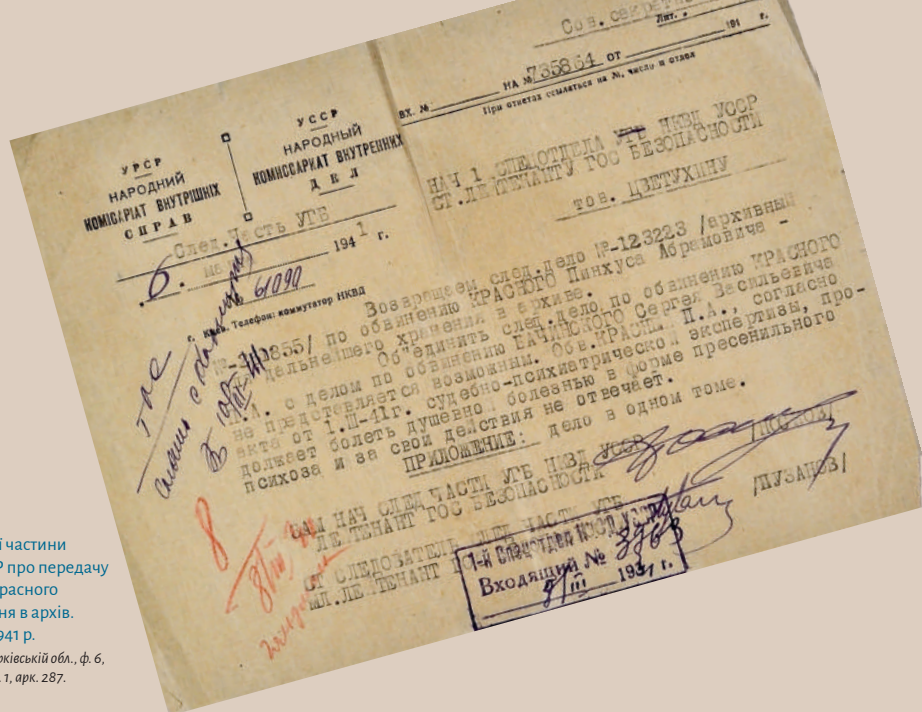 Сов. секретно
Лит.
194 г.
ВХ. № НА № 735864 ОТ
При ответах ссылаться на №, число и отдел
УРСР
НАРОДНИЙ
КОМІСАРІАТ ВНУТРІШНІХ
СПРАВ
УССР
НАРОДНЫЙ
КОМИССАРИАТ ВНУТРЕННИХ
ДЕЛ
След.Часть УГБ
6 1941 г.
№ 61090
Телефон: коммутатор НКВД
НАЧ 1 СПЕЦОТДЕЛА УГБ НКВД УССР
СТ.ЛЕЙТЕНАНТУ ГОС БЕЗОПАСНОСТИ
тов. ЦВЕТУХИНУ
Возвращаем след.дело №-123223 /архивный
855/ по обвинению КРАСНОГО Пинхуса Абрамовича -
дальнейшего хранения в архиве.
Объединить след.дело по обвинению КРАСНОГО
П.А. с делом по обвинению БАЧИНСКОГО Сергея Васильевича
не представляется возможным. Обв.КРАСНЫЙ П.А., согласно
акта от 1.III-41г. судебно-психиатрической экспертизы, про-
должает болеть душевной болезнью в форме пресенильного
психоза и за свои действия не отвечает.
ПРИЛОЖЕНИЕ: дело в одном томе.
ЗАМ НАЧ СЛЕД ЧАСТИ УГБ НКВД УССР
ЛЕЙТЕНАНТ ГОС БЕЗОПАСНОСТИ
СТ СЛЕДОВАТЕЛЬ СЛЕД ЧАСТИ УГБ
МЛ.ЛЕЙТЕНАНТ
/ПУЗАНОВ/
1-й Спецотдел НКВД УССР
Входящий №
8/III 1941 г.
8
8/III
ї частини
Р про передачу
расного
ня в архів.
941 р.
рківській обл., ф. 6,
. 1, арк. 287.